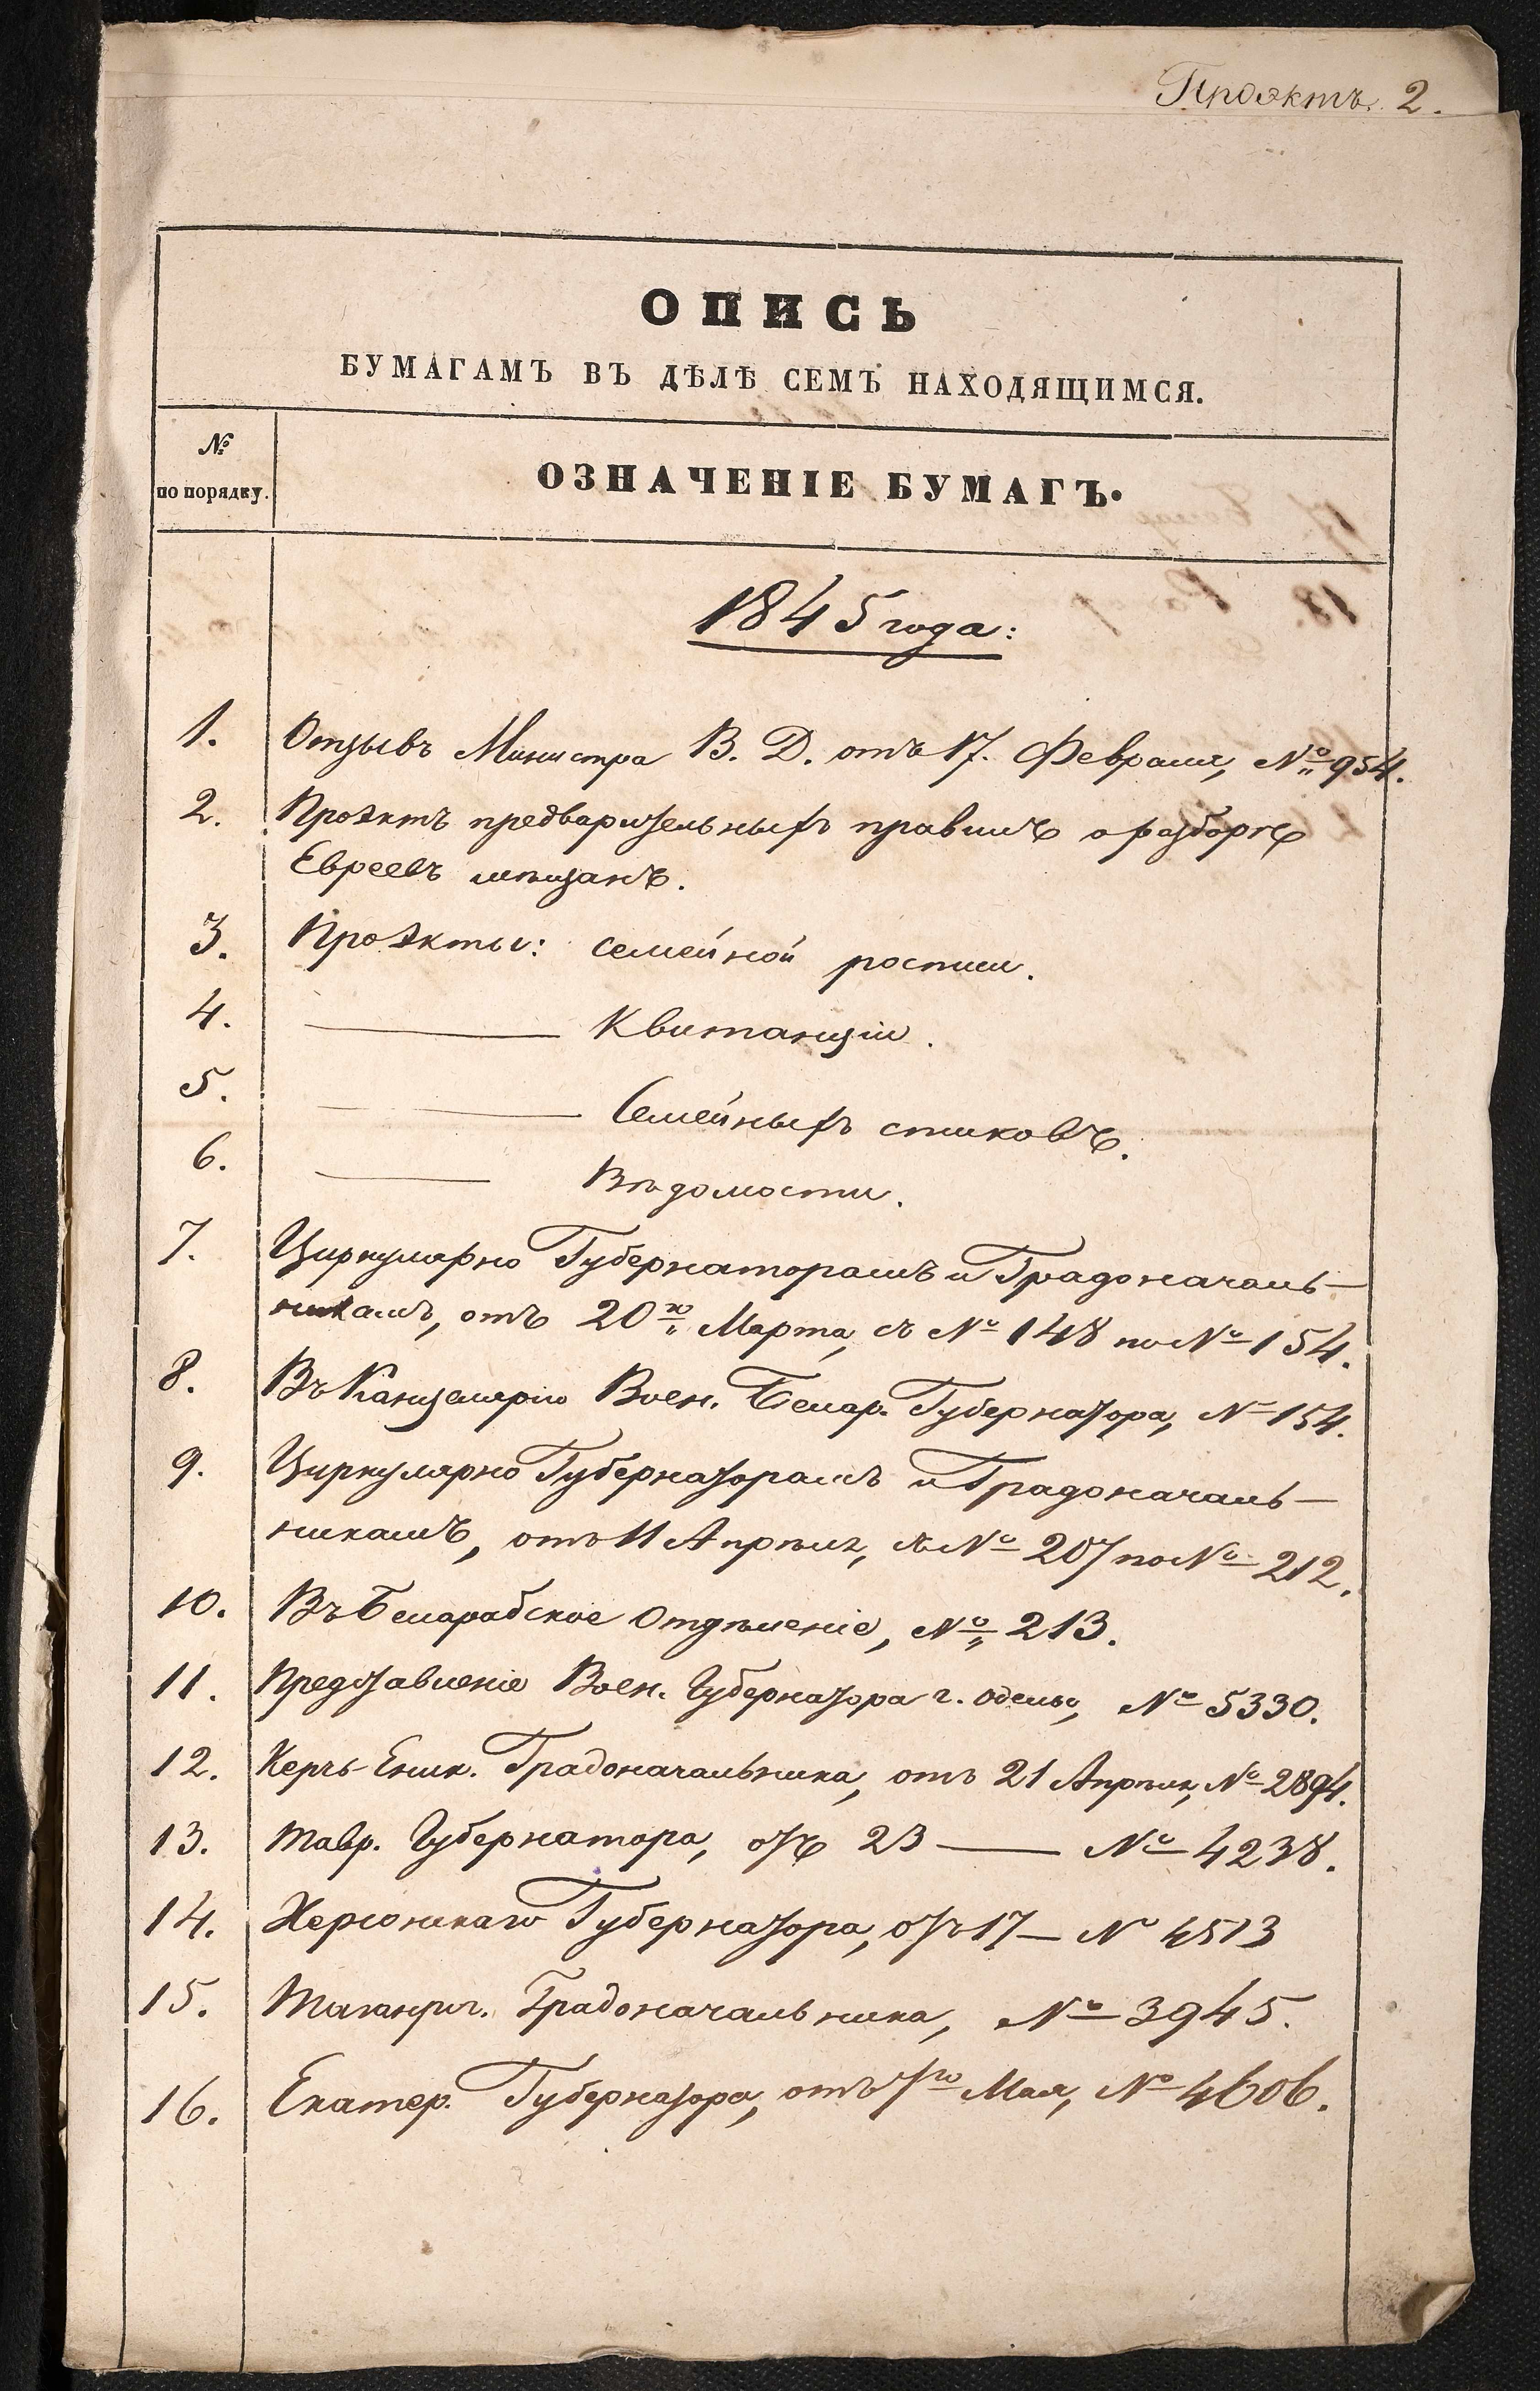 Проэктъ. 2.
ОПИСЬ
БУМАГАМЪ ВЪ ДѢЛѢ СЕМЪ НАХОДЯЩИМСЯ.
№
по порядку.
ОЗНАЧЕНІЕ БУМАГЪ.
1845 года:
1. Отзывъ Министра В. Д. отъ 17. Февраля, № 954.
2. Проэктъ предварительныхъ правилъ о разборѣ
Евреевъ мѣщанъ.
3. Проэкты: семейной росписи.
4. ——— Квитанціи.
5. ——— Семейныхъ списковъ.
6. ——— Вѣдомости.
7. Циркулярно Губернаторамъ и Градоначаль-
никамъ, отъ 20го Марта, съ № 148 по № 154.
8. Въ Канцелярію Воен. Бессар. Губернатора, № 154.
9. Циркулярно Губернаторамъ и Градоначаль-
никамъ, отъ 11 Апрѣля, съ № 207 по № 212.
10. Въ Бессарабское Отдѣленіе, № 213.
11. Представленіе Воен. Губернатора г. Одессы, № 5330.
12. Керчь-Еник. Градоначальника, отъ 21 Апрѣля, № 2894.
13. Тавр. Губернатора, отъ 23 ——— № 4238.
14. Херсонскаго Губернатора, отъ 17 — № 4513
15. Таганрог. Градоначальника, № 3945.
16. Екатер. Губернатора, отъ 7го Мая, № 4606.